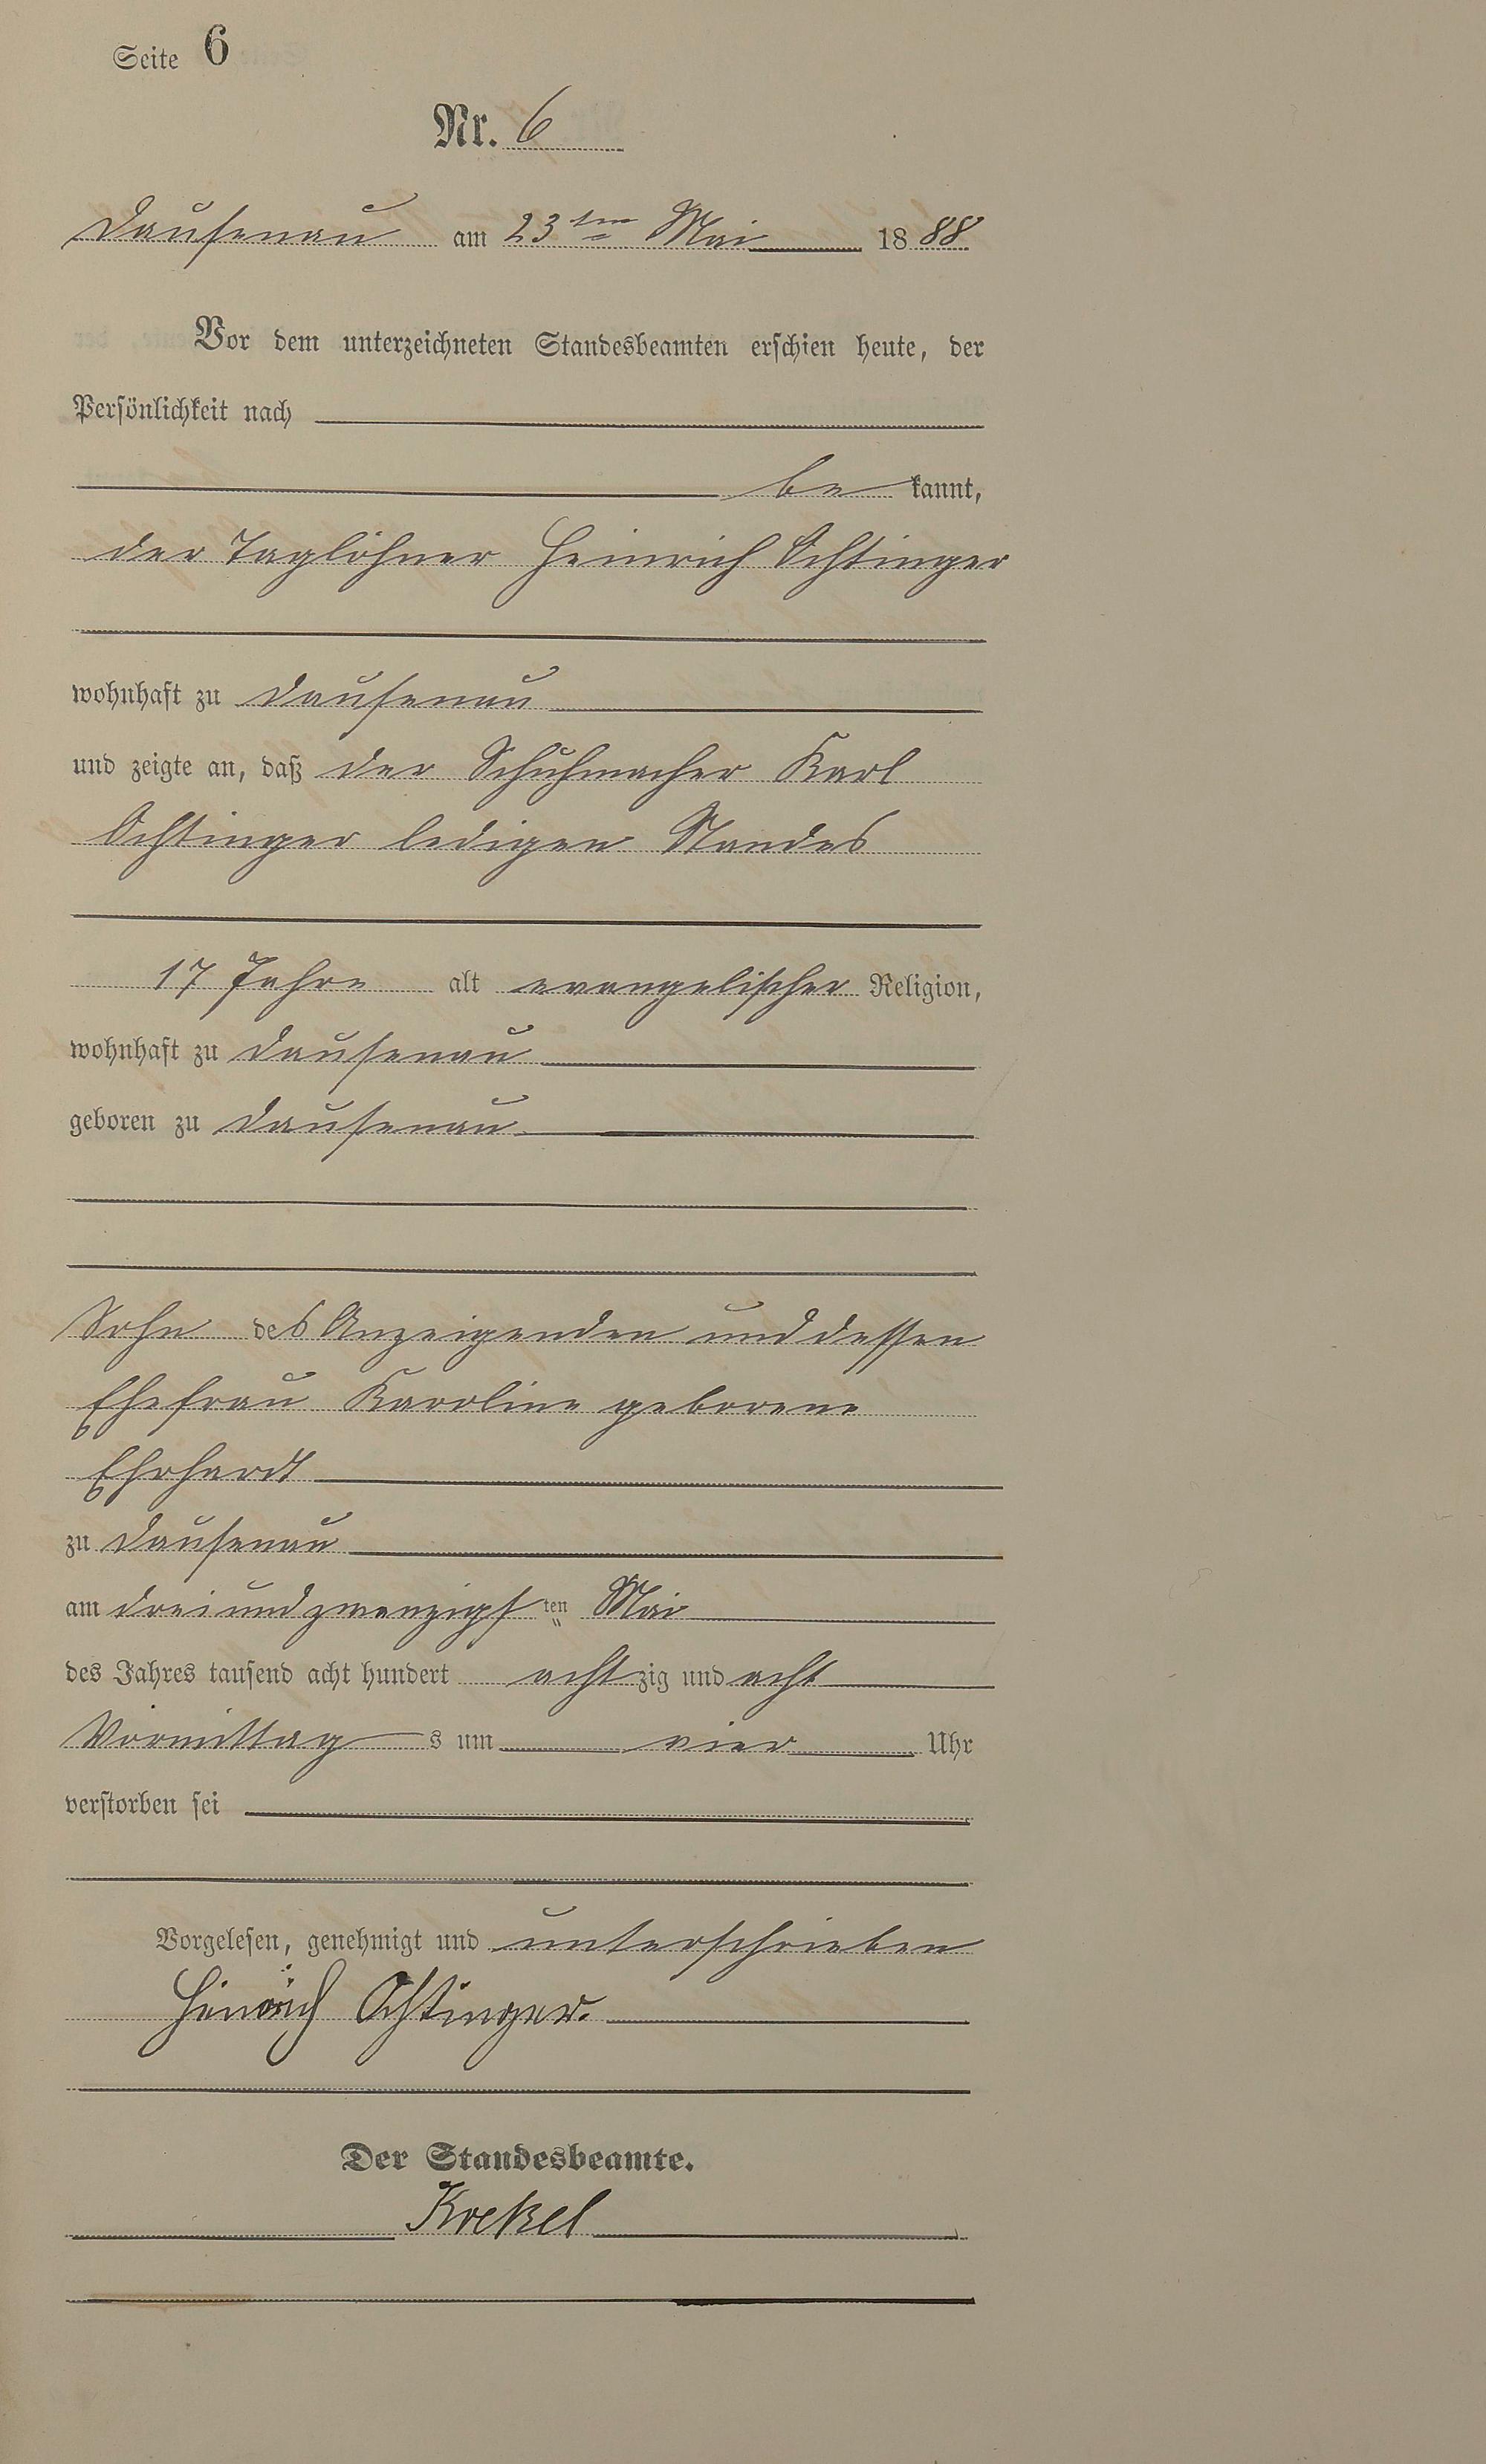 Seite 6
Nr. 6
Dausenau am 23ten Mai 1888
Vor dem unterzeichneten Standesbeamten erschien heute, der
Persönlichkeit nach
be kannt,
der Taglöhner Heinrich Achtinger
wohnhaft zu Dausenau
und zeigte an, daß der Schuhmacher Karl
Achtinger ledigen Standes
17 Jahre alt evangelischer Religion,
wohnhaft zu Dausenau
geboren zu Dausenau
Sohn des Anzeigenden und dessen
Ehefrau Karoline geborene
Ehrhardt
zu Dausenau
am dreiundzwanzigsten Mai
des Jahres tausend acht hundert achtzig und acht
Vormittags um vier Uhr
verstorben sei
Vorgelesen, genehmigt und unterschrieben
Heinrich Achtinger.
Der Standesbeamte.
Krekel